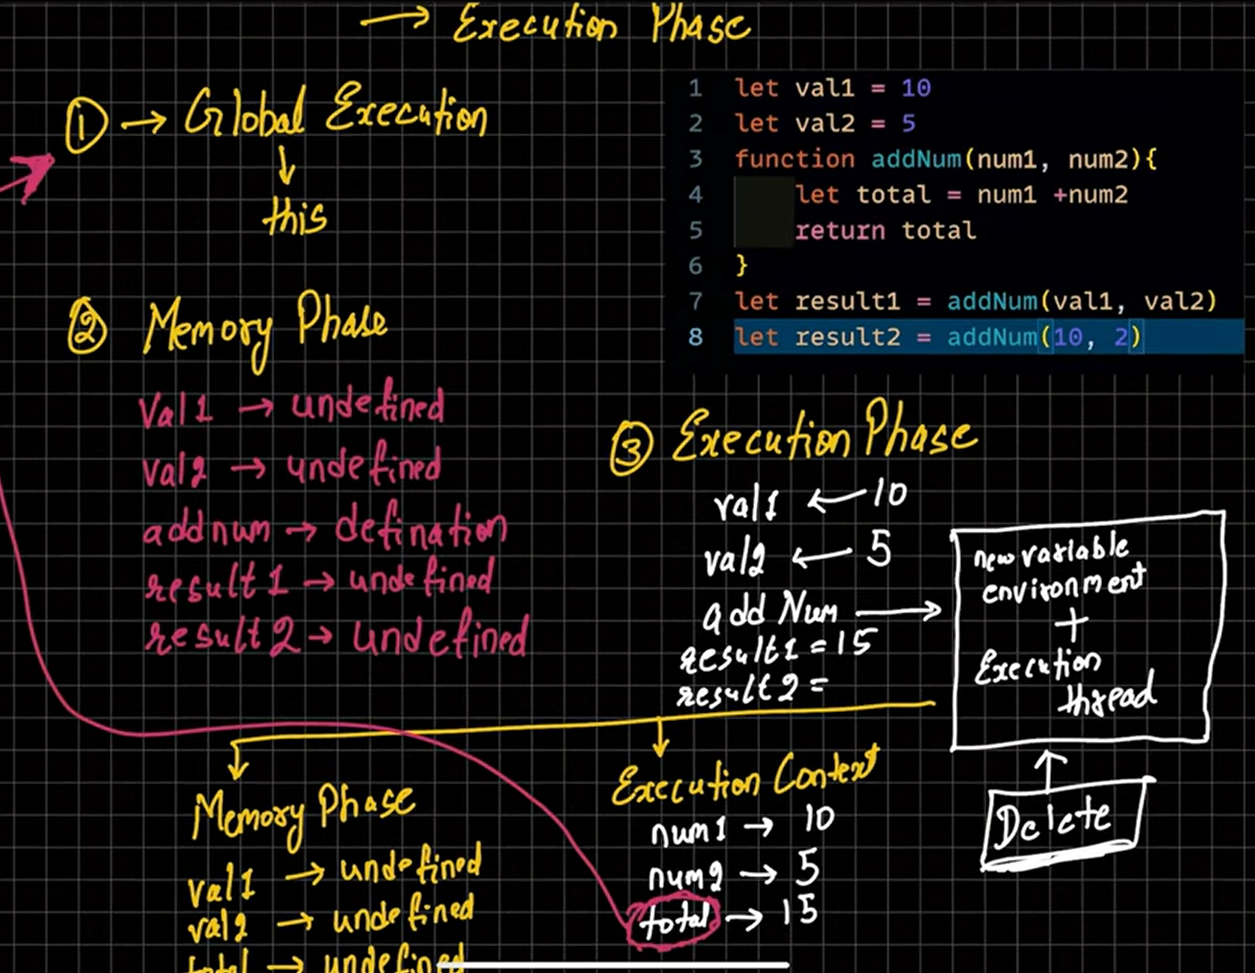 → Execution Phase
① → Global Execution
↓
this
1 let val1 = 10
2 let val2 = 5
3 function addNum(num1, num2){
4 let total = num1 +num2
5 return total
6 }
7 let result1 = addNum(val1, val2)
8 let result2 = addNum(10, 2)
② Memory Phase
Val1 → undefined
val2 → undefined
addnum → defination
result1 → undefined
result2 → undefined
③ Execution Phase
val1 ← 10
val2 ← 5
add Num →
result1 = 15
result2 =
new variable
environment
+
Execution
thread
Delete
Memory Phase
val1 → undefined
val2 → undefined
total → undefined
Execution Context
num1 → 10
num2 → 5
total → 15